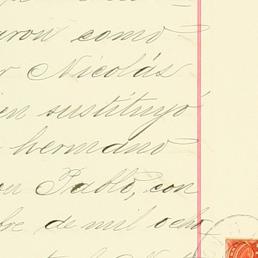 aron como
r Nicolás
en sustituyó
hermano
on Pablo, con
bre de mil ocho